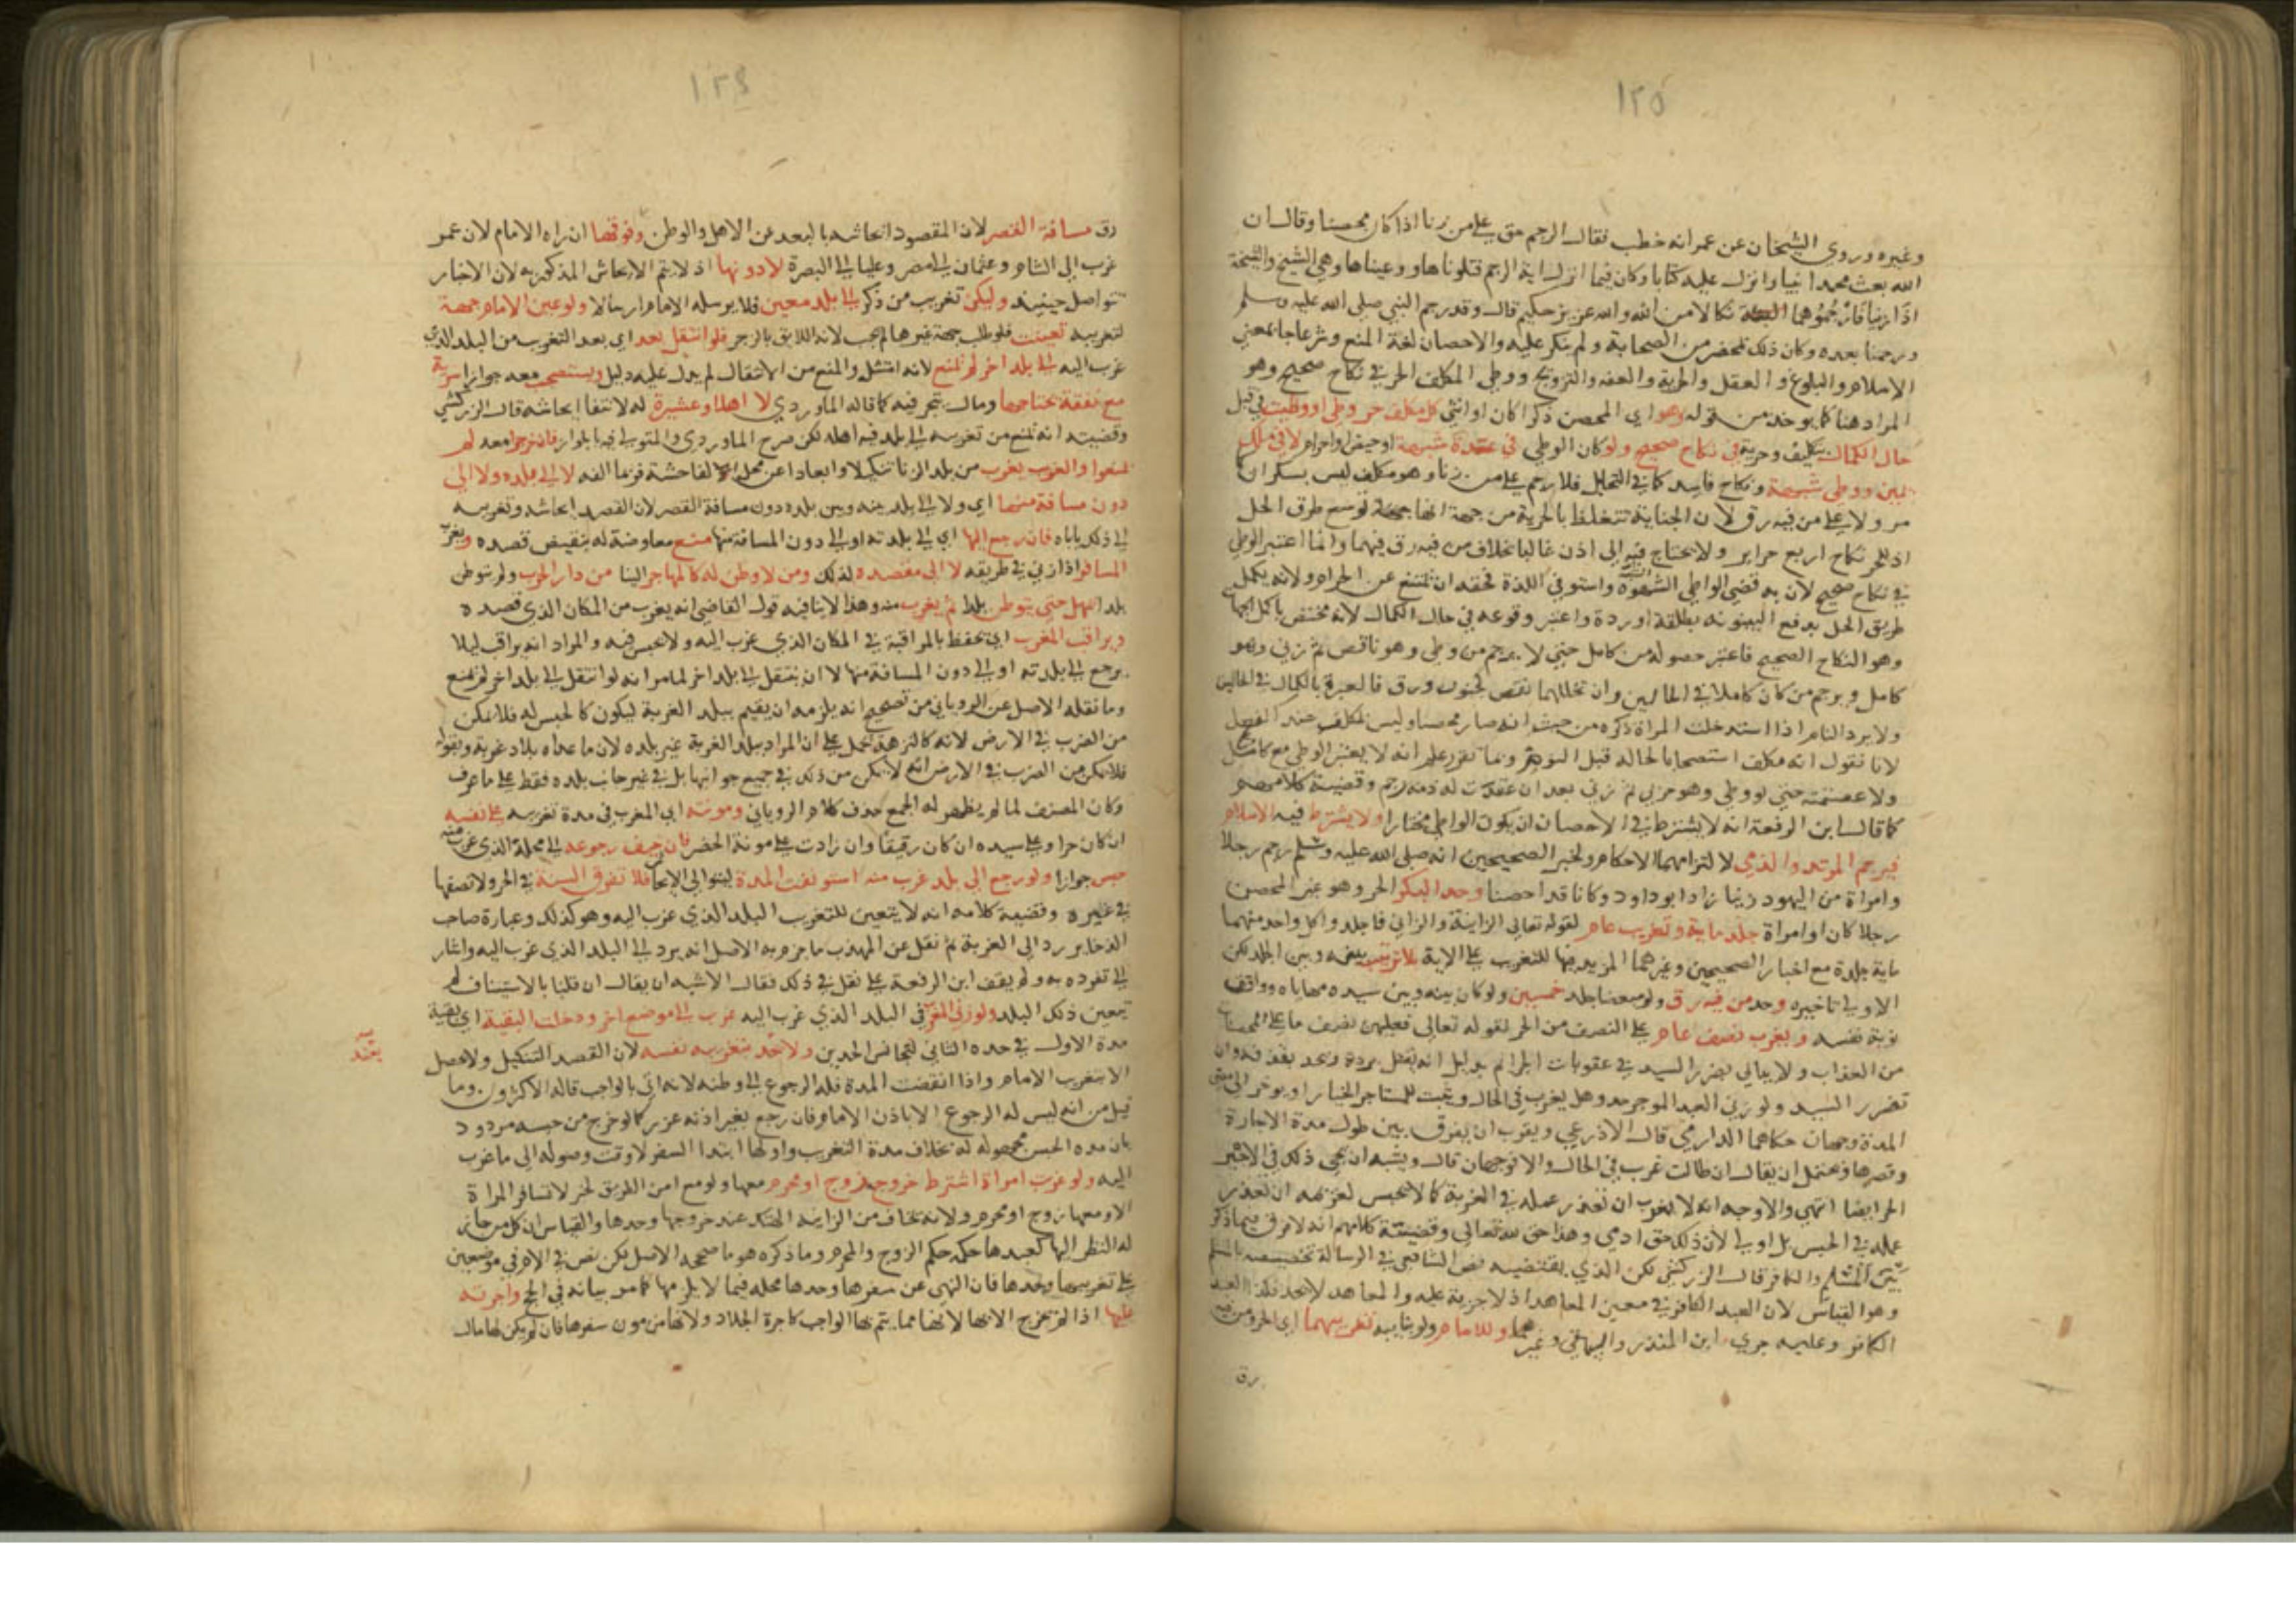 ١٢٥
وغيره وروي الشيخان عن عمر انه خطب فقال الرجم حق على من زنا اذا كان محصنا وقال ان
الله بعث محمدا نبيا وانزل عليه كتابا وكان فيما انزل اية الرجم فتلوناها ووعيناها وهي الشيخ والشيخة
اذا زنيا فارجموهما البتة نكالا من الله والله عزيز حكيم قال وقد رجم النبي صلى الله عليه وسلم
ورجمنا بعده وكان ذلك بمحضر من الصحابة ولم ينكر عليه والاحصان لغة المنع وشرعا جا بمعني
الاسلام والبلوغ والعقل والحرية والعفه والتزويج ووطي المكلف الحر في نكاح صحيح وهو
المراد هنا كما يوخد من قوله وهو اي المحصن ذكرا كان او انثي كل مكلف حر وطي او وطيت في قبل
حال الكمال بتكليف وحرية في نكاح صحيح ولو كان الوطي في عدة شبهة او حيض او احرام لا في ملك
يمين ووطي شبهة ونكاح فاسد كما في التحليل فلا رجم على من زنا وهو مكلف ليس بسكران
مر ولا على من فيه رق لان الجناية تتغلظ بالحرية من جهة انها توسع طرق الحل
اذ للحر نكاح اربع حراير ولا يحتاج فيه الى اذن غالبا بخلاف من فيه رق فيهما وانما اعتبر الوطي
في نكاح صحيح لان به قضي الواطي الشهوة واستوفي اللذة فحقه ان يمتنع عن الحرام ولانه يكمل
طريق الحل بدفع البينونه بطلقة او ردة واعتبر وقوعه في حال الكمال لانه مختص باكمل الجهات
وهو النكاح الصحيح فاعتبر حصوله من كامل حتي لا يرجم من وطي وهو ناقص ثم زني وهو
كامل ويرجم من كان كاملا في الحالين وان تخللهما نقص كجنون ورق فالعبرة بالكمال في الحالين
ولا يرد النايم اذا استدخلت المراة ذكره من حيث انه صار محصنا وليس بمكلف عند الفعل
لانا نقول انه مكلف استصحابا لحاله قبل النوم وبما تقرر علم انه لا يعتبر الوطي مع كامل
ولا عصمته حتي لو وطي وهو حربي ثم زني بعد ان عقدت له ذمه رجم وقضية كلامهم
كما قال ابن الرفعة انه لا يشترط في الاحصان ان يكون الواطي مختارا ولا يشترط فيه الاسلام
فيرجم المرتد والذمي لالتزامهما الاحكام ولخبر الصحيحين انه صلى الله عليه وسلم رجم رجلا
وامراة من اليهود زنيا زاد ابو داود وكانا قد احصنا وحد البكر الحر وهو غير المحصن
رجلا كان او امراة جلد ماية وتغريب عام لقوله تعالى الزانية والزاني فاجلدوا كل واحد منهما
ماية جلدة مع اخبار الصحيحين وغيرهما المزيد فيها للتغريب على الاية بلا ترتيب بينه وبين الجلد لكن
الاولى تاخيره وحد من فيه رق ولو مبعضا جلد خمسين ولو كان بينه وبين سيده مهاياه ووافق
نوبة نفسه ويغرب نصف عام على النصف من الحر لقوله تعالى فعليهن نصف ما على المحصنات
من العذاب ولا يبالي بضرر السيد في عقوبات الجرايم بدليل انه يقتل بردة ويحد بقذف وان
تضرر السيد ولو زني العبد الموجر حد وهل يغرب في الحال ويثبت للمستاجر الخيار او يوخر الى مضي
المدة وجهان حكاهما الدارمي قال الاذرعي ويقرب ان يفرق بين طول مدة الاجارة
وقصرها ويحتمل ان يقال ان طالت غرب في الحال والا فوجهان قال ويشبه ان يجي ذلك في الاجير
الحر ايضا انتهي والاوجه انه لا يغرب ان تعذر عمله في الغربة كما لا يحبس لغريمه ان تعذر
عمله في الحبس بل اولى لان ذلك حق ادمي وهذا حق لله تعالى وقضية كلامهم انه لا فرق فيما ذكر
بين المسلم والكافر قال الزركشي لكن الذي يقتضيه نص الشافعي في الرسالة تخصيصه بالمسلم
وهو القياس لان العبد الكافر في معني المعاهد اذ لا جزية عليه والمعاهد لا يحد فكذا العبد
الكافر وعليه جري ابن المنذر والبيهقي وغيرهما وللامام ولو بنايبه تغريبهما اي الحر ومن فيه
رق
١٢٤
رق مسافة القصر لان المقصود ايحاشه بالبعد عن الاهل والوطن وفوقها ان راه الامام لان عمر
غرب الى الشام وعثمان الى مصر وعليا الى البصرة لا دونها اذ لا يتم الايحاش المذكور به لان الاخبار
تتواصل حينيذ وليكن تغريب من ذكر الى بلد معين فلا يرسله الامام ارسالا ولو عين الامام جهة
لتغريبه تعينت فلو طلب جهة غيرها لم يجب لانه اللايق بالزجر فلو انتقل بعد اي بعد التغريب من البلد الذي
غرب اليه الى بلد اخر لم يمنع لانه امتثل والمنع من الانتقال لم يدل عليه دليل ويستصحب معه جوازا سرية
مع نفقة يحتاجها ومال يتجر فيه كما قاله الماوردي لا اهلا وعشيرة له لانتفا ايحاشه قال الزركشي
وقضيته انه يمنع من تغريبه الى بلد فيه اهله لكن صرح الماوردي والمتولي فيه بالجواز فان خرجوا معه لم
يمنعوا والغريب يغرب من بلد الزنا تنكيلا وابعادا عن محل الفاحشة فربما الفه لا الى بلده ولا الى
دون مسافة منها اي ولا الى بلد بينه وبين بلده دون مسافة القصر لان القصد ايحاشه وتغريبه
الى ذلك ياباه فان رجع اليها اي الى بلدته او الى دون المسافة منها منع معاوضة له بنقيض قصده ويغرب
المسافر اذا زني في طريقه لا الى مقصده لذلك ومن لا وطن له كالمهاجر الينا من دار الحرب ولم يتوطن
بلدا يمهل حتى يتوطن بلدا ثم يغرب منه وهذا لا ينافيه قول القاضي انه يغرب من المكان الذي قصده
ويراقب المغرب اي يحفظ بالمراقبة في المكان الذي غرب اليه ولا يحبس فيه والمراد انه يراقب ليلا
يرجع الى بلدته او الى دون المسافة منها لا ان ينتقل الى بلد اخر لما مر انه لو انتقل الى بلد اخر لم يمنع
وما نقله الاصل عن الروياني من تصحيح انه يلزمه ان يقيم ببلد الغربة ليكون كالحبس له فلا يمكن
من الضرب في الارض لانه كالنزهة يحمل على ان المراد ببلد الغربة غير بلده لان ما عداه بلاد غربة وبقوله
فلا يمكن من الضرب في الارض انه لا يمكن من ذلك في جميع جوانبها بل في غير جانب بلده فقط على ما عرف
وكان المصنف لما لم يظهر له الجمع حذف كلام الروياني ومونته اي المغرب في مدة تغريبه على نفسه
ان كان حرا وعلى سيده ان كان رقيقا وان زادت على مونة الحضر فان خيف رجوعه الى محله الذي غرب منه
حبس جوازا ولو رجع الى بلد غرب منه استونفت المدة ليتوالى الايحاش فلا تفرق السنة في الحر ولا نصفها
في غيره وقضية كلامه انه لا يتعين للتغريب البلد الذي غرب اليه وهو كذلك وعبارة صاحب
الذخاير رد الى الغربة ثم نقل عن المهذب ما جزم به الاصل انه يرد الى البلد الذي غرب اليه واشار
الى تفرده به ولم يقف ابن الرفعة على نقل في ذلك فقال الاشبه ان يقال ان قلنا بالاستيناف لم
يتعين ذلك البلد ولو زني المغرب في البلد الذي غرب اليه غرب الى موضع اخر ودخلت البقية اي بقية
مدة الاول في حده الثاني لتجانس الحدين ولا يعتد بتغريبه نفسه لان القصد التنكيل ولا يحصل
يعتد
الا بتغريب الامام واذا انقضت المدة فله الرجوع الى وطنه لانه اتي بالواجب قاله الاكثرون وما
قيل من انه ليس له الرجوع الا باذن الامام فان رجع بغير اذنه عزر كما لو خرج من حبسه مردود
بان مدة الحبس مجهولة له بخلاف مدة التغريب واولها ابتدا السفر لا وقت وصوله الى ما غرب
اليه ولو غربت امراة اشترط خروج زوج او محرم معها ولو مع امن الطريق لخبر لا تسافر المراة
الا ومعها زوج او محرم ولانه يخاف من الزانية الهتك عند خروجها وحدها والقياس ان كل من جاز
له النظر اليها كعبدها حكمه حكم الزوج والمحرم وما ذكره هو ما صححه الاصل لكن نص في الام في موضعين
على تغريبها وحدها فان النهي عن سفرها وحدها محله فيما لا يلزمها كما مر بيانه في الحج واجرته
عليها اذا لم يخرج الا بها لانها مما يتم بها الواجب كاجرة الجلاد ولانها من مون سفرها فان لم يكن لها مال